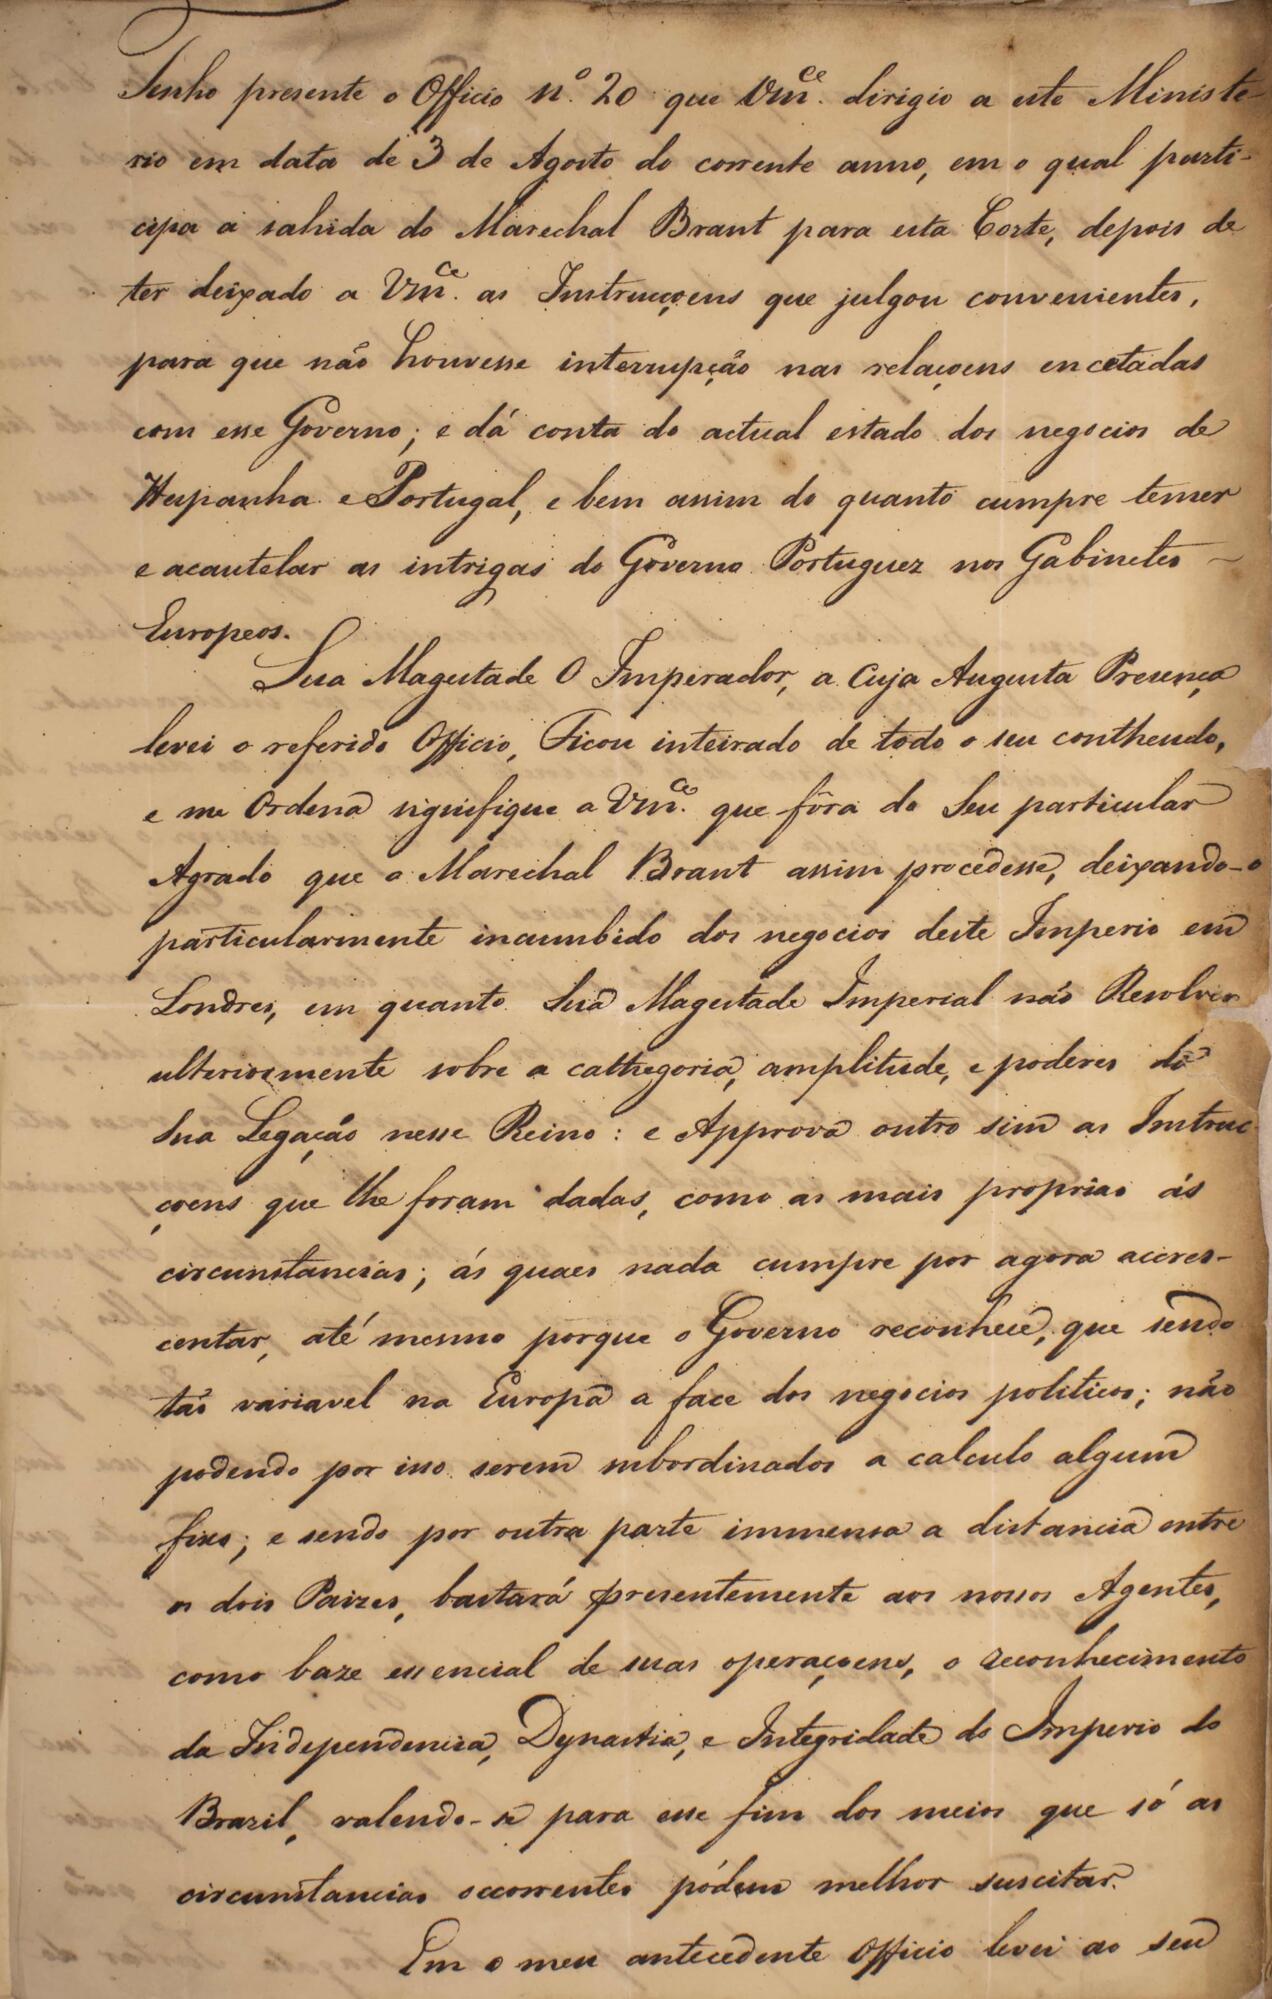 Tenho presente o Officio nº. 20 que Vmce. dirigio a este Ministe-
rio em data de 3 de Agosto do corrente anno, em o qual parti-
cipa a sahida do Marechal Brant para esta Corte, depois de
ter deixado a Vmce. as Instrucçoens que julgou convenientes,
para que não houvesse interrupção nas relaçoens encetadas
com esse Governo; e dá conta do actual estado dos negocios de
Hespanha e Portugal, e bem assim do quanto cumpre temer
e acautelar as intrigas do Governo Portuguez nos Gabinetes
Europeos.
Sua Magestade O Imperador, a Cuja Augusta Presença
levei o referido Officio, Ficou inteirado de todo o seu contheudo,
e me Ordena signifique a Vmce. que fôra do Seu particular
Agrado que o Marechal Brant assim procedesse, deixando-o
particularmente incumbido dos negocios deste Imperio em
Londres, em quanto Sua Magestade Imperial não Resolver
ulteriormente sobre a cathegoria, amplitude, e poderes da
Sua Legação nesse Reino: e Approva outro sim as Instruc-
çoens que lhe foram dadas, como as mais proprias ás
circunstancias; ás quaes nada cumpre por agora accres-
centar, até mesmo porque o Governo reconhece, que sendo
tão variavel na Europa a face dos negocios politicos; não
podendo por isso serem subordinados a calculo algum
fixo; e sendo por outra parte immensa a distancia entre
os dois Paizes, bastará presentemente aos nossos Agentes,
como baze essencial de suas operaçoens, o reconhecimento
da Independencia, Dynastia, e Integridade do Imperio do
Brazil, valendo-se para esse fim dos meios que só as
circunstancias occorrentes pódem melhor suscitar.
Em o meu antecedente Officio levei ao seu